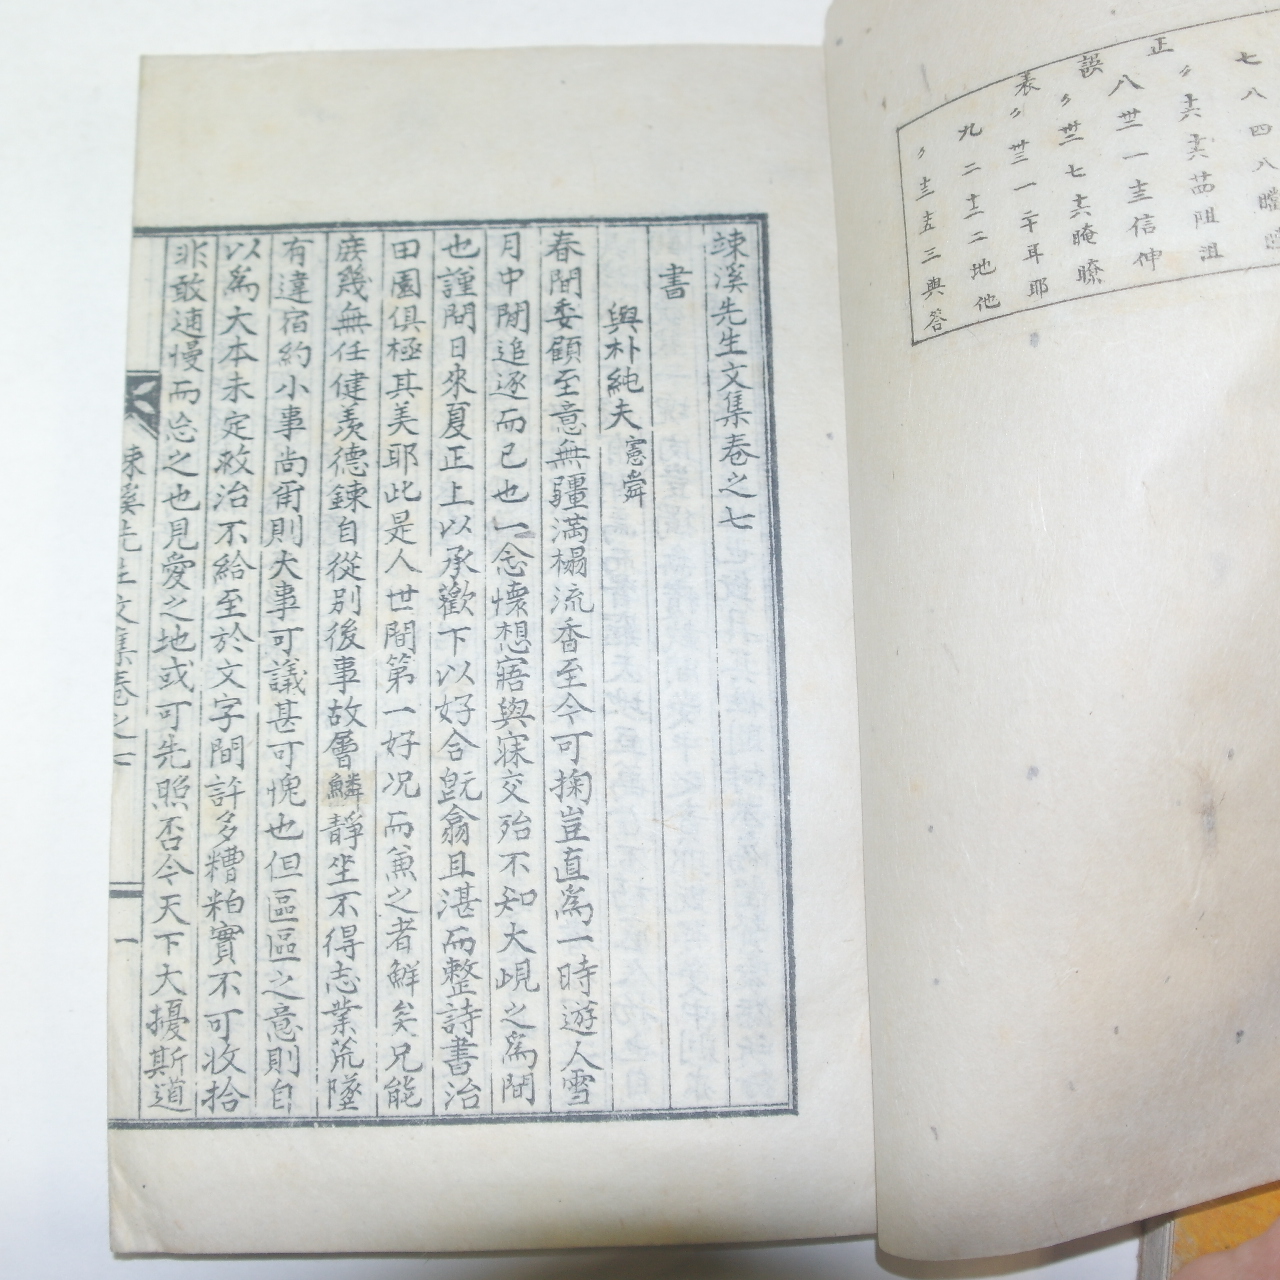 七八四八體
〃十六十六苗阻沮
八卅一十三信伸
〃卅七十六晻暸
〃卅三一二十耳耶
九二十二二地他
〃十三十五三與答
正誤表
竦溪先生文集卷之七
書
與朴純夫 憲舜
春間委顧至意無疆滿榻流香至今可掬豈直爲一時遊人雪
月中閒追逐而已也一念懷想寤與寐交殆不知大峴之爲間
也謹問日來夏正上以承歡下以好合旣翕且湛而整詩書治
田園俱極其美耶此是人世間第一好况而兼之者鮮矣兄能
庶幾無任健羨德鍊自從別後事故層鱗靜坐不得志業荒墜
有違宿約小事尚甭則大事可議甚可愧也但區區之意則自
以爲大本未定救治不給至於文字間許多糟粕實不可收拾
非敢逋慢而忘之也見愛之地或可先照否今天下大擾斯道
竦溪先生文集卷之七
一